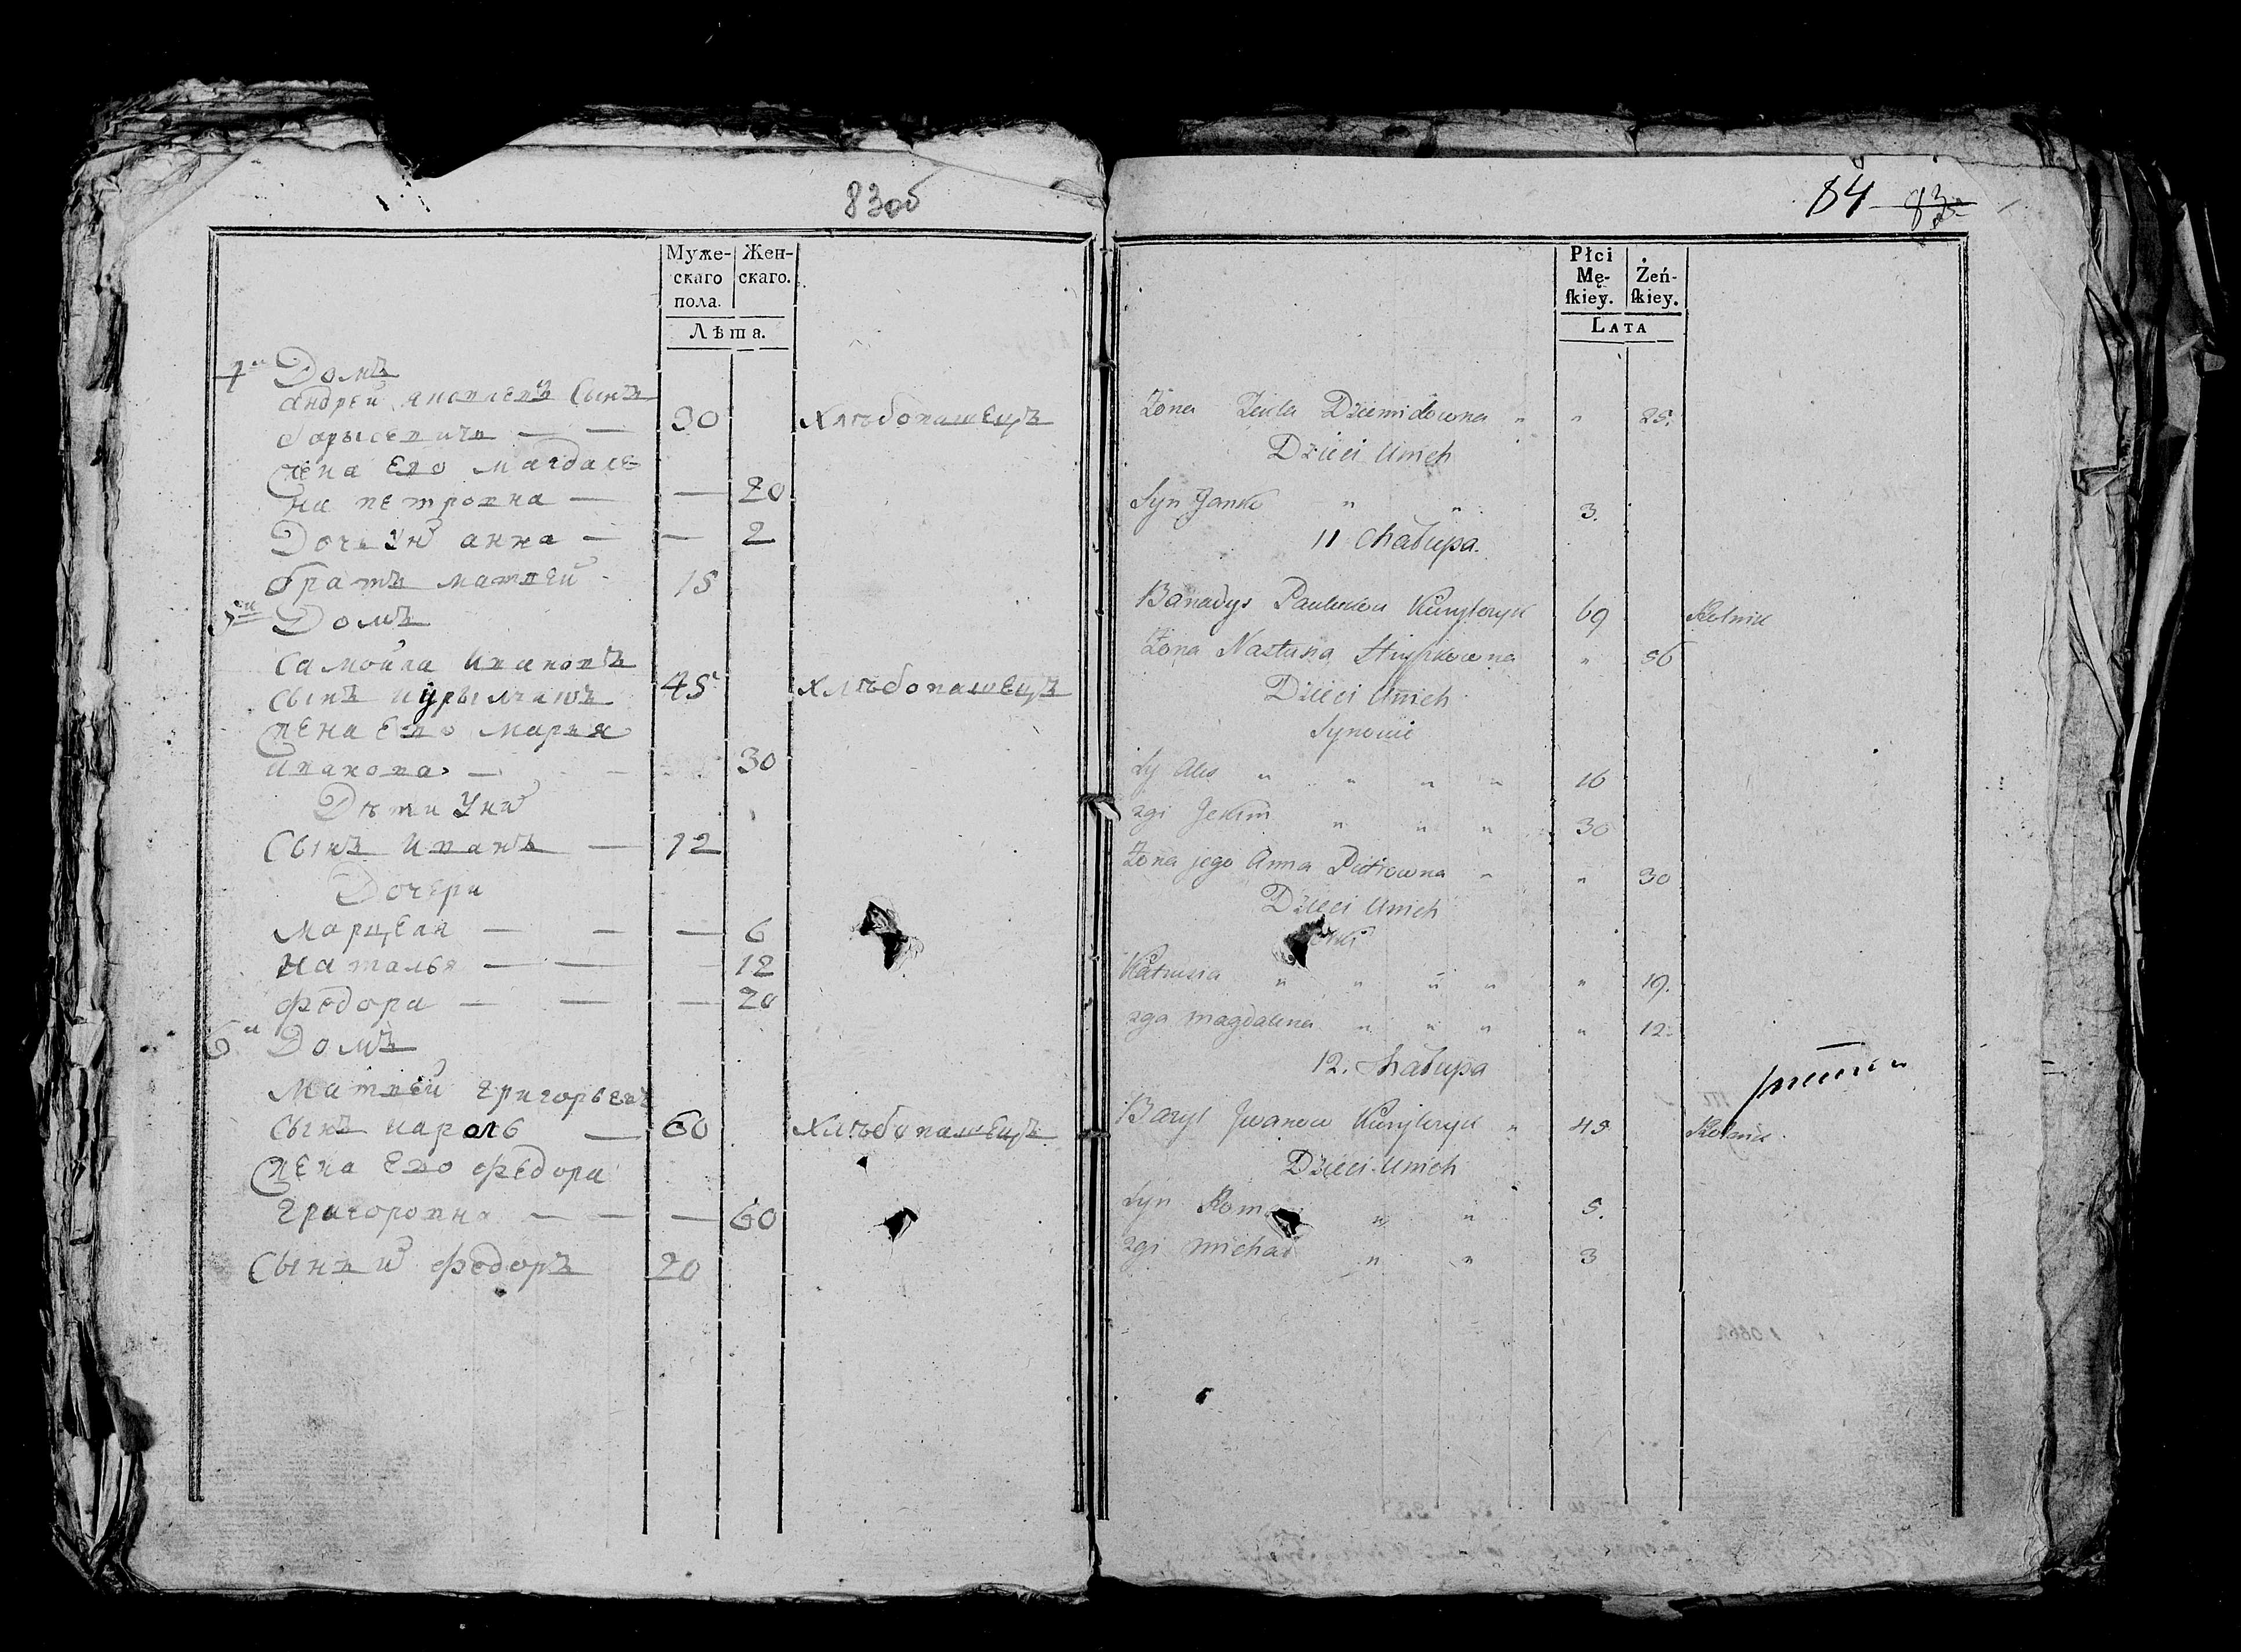 83об
Муже-
скаго
пола.
Жен-
скаго.
Лѣта.
Домъ
Андрей Яковлевъ Сынъ
30 Хлѣбопашецъ
Жена Его Магдале
на Петровна — — 20
Дочь Ун анна — — 2
братъ матвей 15
Домъ
Самойла Ивановъ
сынъ 45 Хлѣбопашецъ
жена Его марья
Иванова — 30
Дѣти Уни
Сынъ Иванъ — 12
Дочери
Марцеля — — — 6
Наталья — — 12
Федора — — — 20
6й Домъ
Матвей Григорьевъ
Сынъ Кароль — 60 Хлѣбопашецъ
жена Его Федора
Григоровна — — — 60
Сынъ и Федоръ 20
84 83
Płci
Mę-
ſkiey.
Żeń-
ſkiey.
Lata
Żona Dziemidowna " " 25.
Dzieci Unich
Syn Janko " " 3.
11 Chałupa.
69 Rolnik
Żona Nastusia " 56
Dzieci Unich
Synowie
Sy Ales " " " " 16
2gi Jekim " " " 30
Żona jego Anna Piotrowna " " 30
Dzieci Unich
Katrusia " " " " " 19.
2ga Magdalena " " " " 12.
12. Chałupa
Iwanow " 45 Rolnik
Dzieci Unich
Syn Rom " " 5.
2gi Michał " " 3